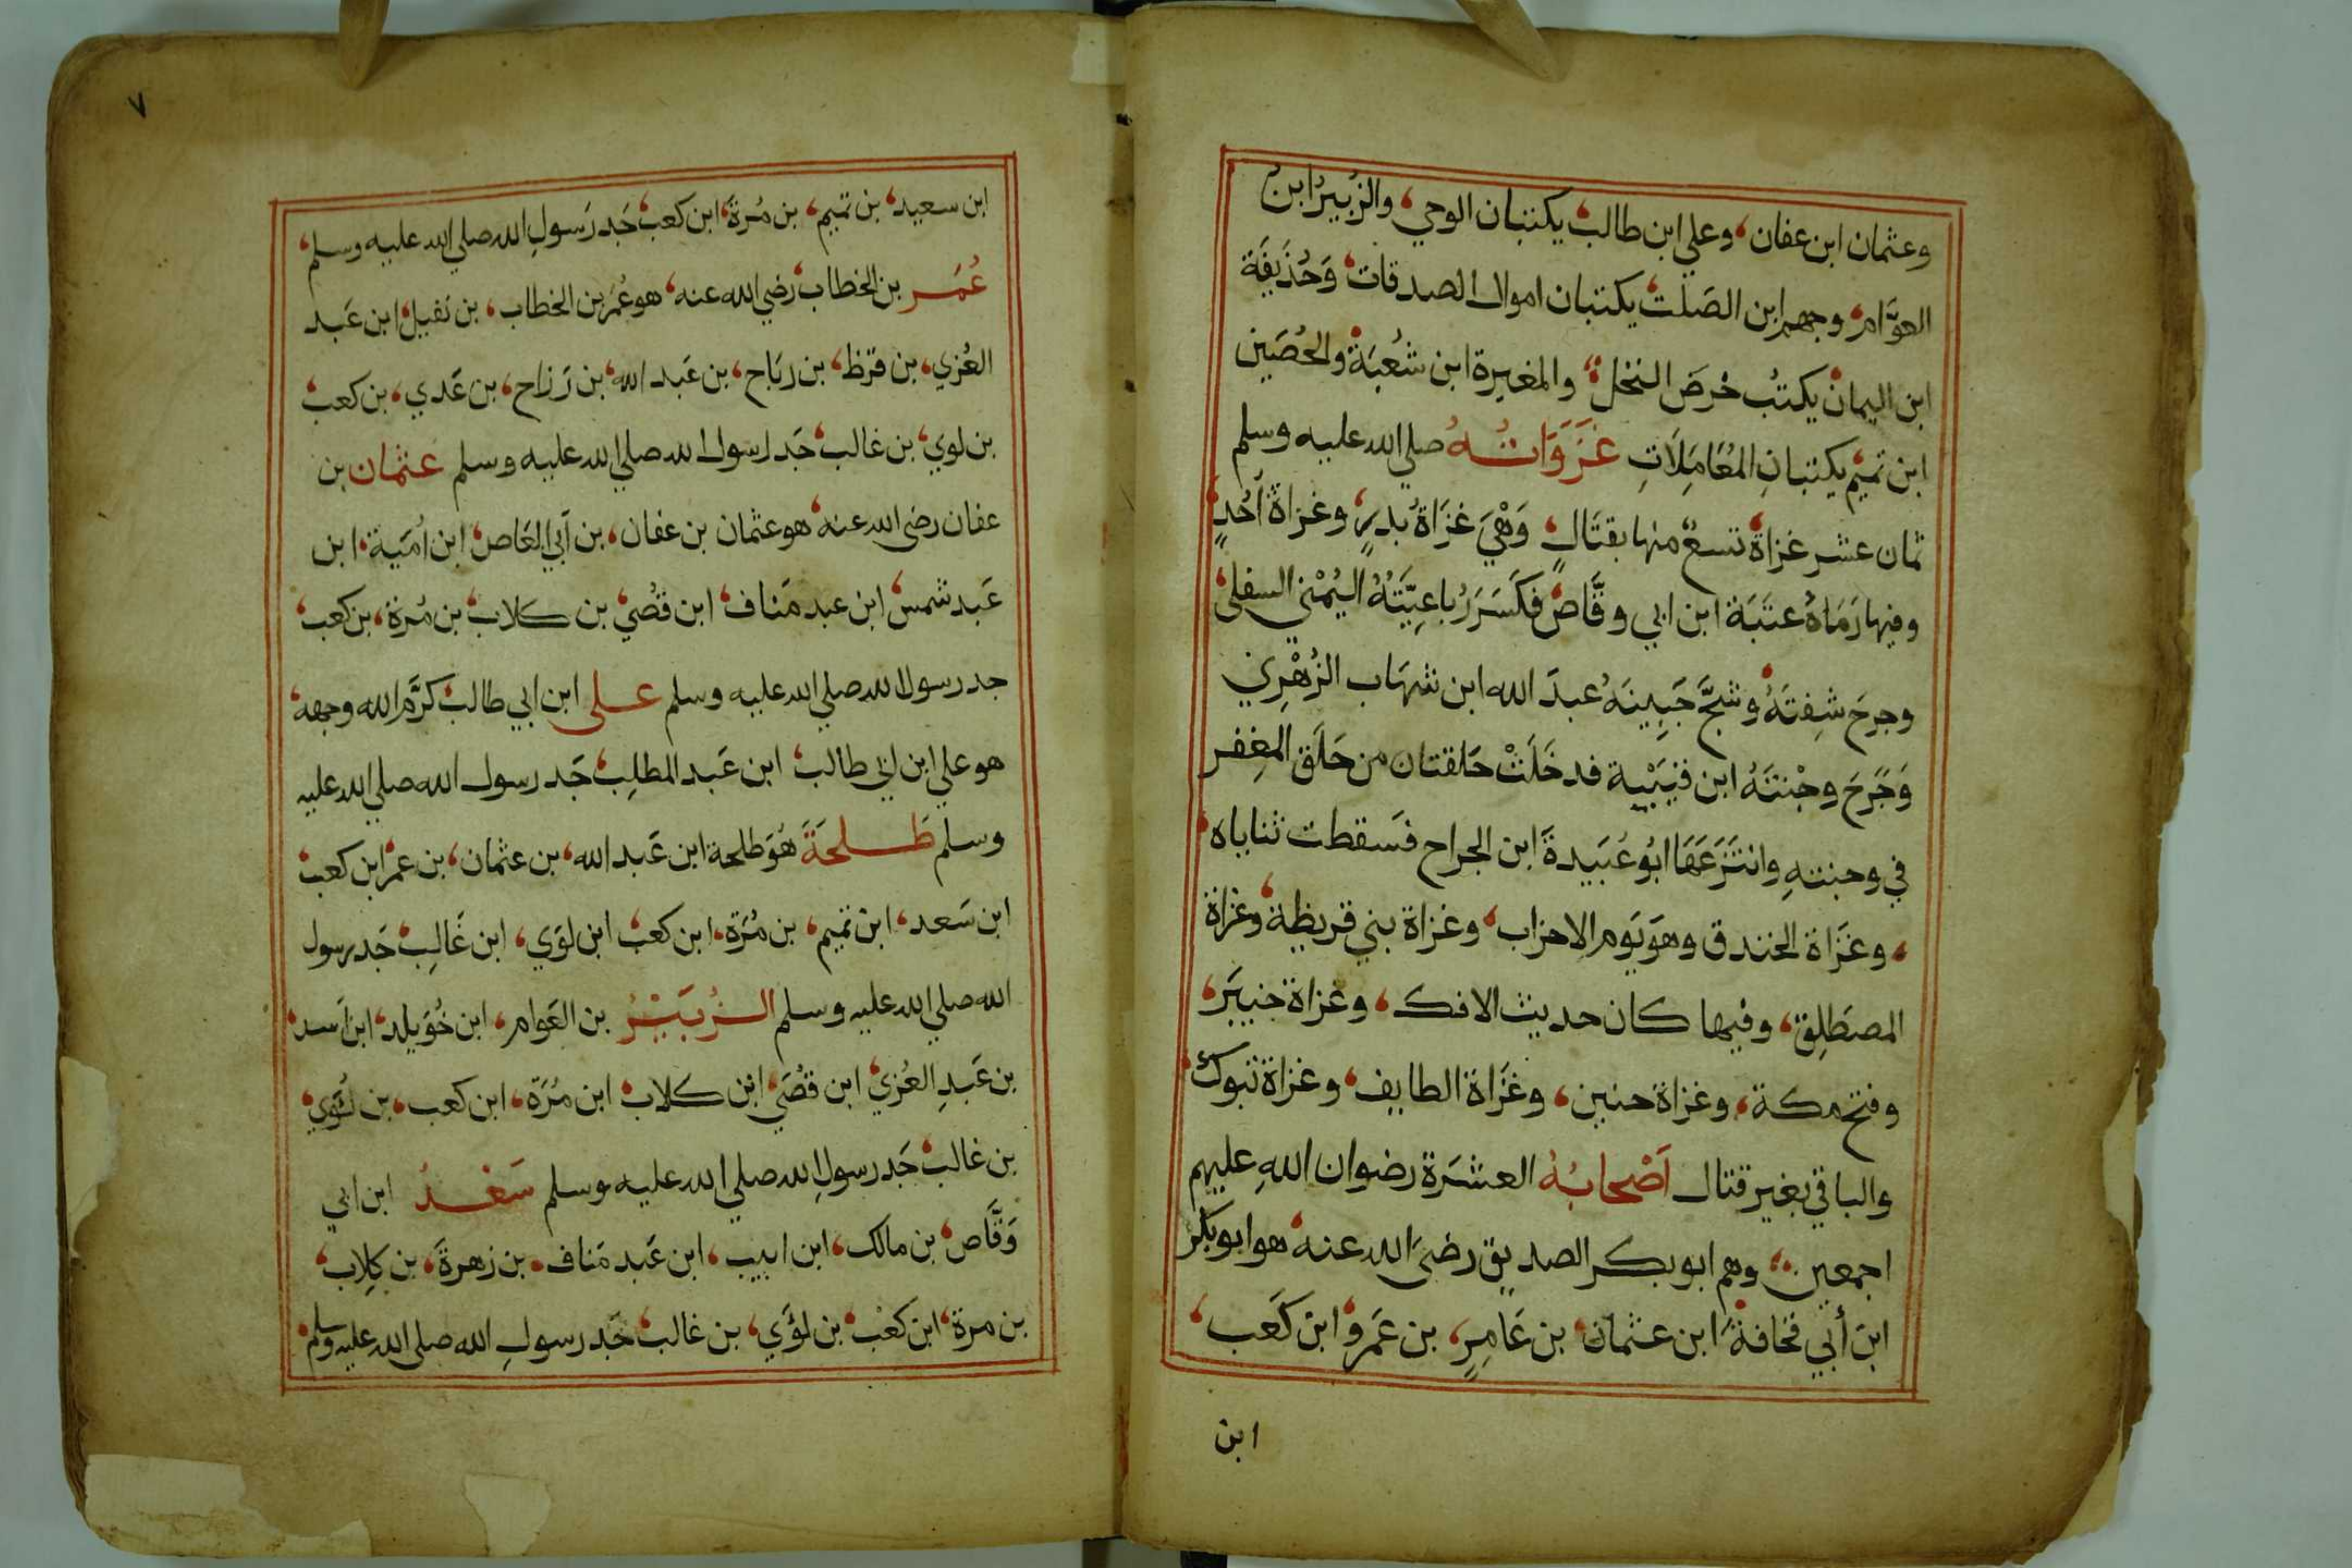 وعثمان ابن عفان، وعلي ابن طالب يكتبان الوحي، والزُبيرُ ابنُ
العوَّام، وجهم ابن الصَلت يكتبان اموال الصدقات، وَحُذَيفَة
ابن اليمان يكتُب خرصَ النخل، والمغيرة ابن شُعبَة والحُصَين
ابن تميم يكتبانِ المُعَامَلَاتِ غَزَوَاتُهُ صلي الله عليه وسلم
ثمان عشر غزاة تسعٌ منها بقتالٍ وَهْيَ غزَاةُ بدرٍ، وغزاة أُحُدٍ،
وفيها رَمَاهُ عتَبَة ابن ابي وقَّاص فكَسَرَ رُباعِيَّتَهُ اليُمْني السفلي،
وجرحَ شفِتَهُ وشجَّ جَبِينَهُ عبدَ الله ابن شهَاب الزُهْرِي
وَجَرَحَ وجْنتَهُ ابن قيَبْية فدخَلَتْ حَلقتان من حَلَق المِغفر
في وجنتهِ وانتَزعَهَا ابُو عُبَيدةَ ابن الجراح فسَقطت ثناياه،
، وغَزَاة الخندق وهوَ يَوم الاحزاب، وغزاة بني قريظة، وغزاة
المصطَلِق، وفيها كان حديث الافك، وغزاة خيبَر،
وفتح مكة، وغزاة حنين، وغَزَاة الطايف، وغزاة تبوك،
والباقي بغير قتال اَصْحابُهُ العشرَة رضوان اللهِ عليهم
اجمعين، وهم ابو بكر الصديق رضيَ الله عنه، هو ابو بكر
ابن أبي قحافة، ابن عثمان، بن عَامِرٍ، بن عَمرو، ابن كَعب،
ابن
٧
ابن سعيد، بن تميم، بن مُرةَ، ابن كعب، جَد رَسولِ الله صلي الله عليه وسلم،
عُمَر بن الخطاب، رضي الله عنه، هو عُمَر بن الخطاب، بن نفيل، ابن عَبد
العُزي، بن قرظ، بن ربَاح، بن عَبد الله، بن رَزاح، بن عَدي، بن كعب،
بن لوي، بن غالب، جَد رسول الله صلي الله عليه وسلم عثمان بن
عفان رضى الله عنه، هو عثمان بن عفان، بن أبي العَاص، ابن اُمَية، ابن
عَبد شمس، ابن عبد مَناف، ابن قصُي، بن كلاب، بن مُرة، بن كعب،
جد رسول الله صلي الله عليه وسلم على ابن ابي طالب، كرَّم الله وجهه،
هو علي ابن ابي طالب، ابن عَبد المطلِب، جَد رسول الله صلي الله عليه
وسلم طَلحَةَ هُوَ طلحة ابن عَبد الله، بن عثمان، بن عمر، ابن كعب،
ابن سَعد، ابن تميم، بن مُرَة، ابن كعب، ابن لوَي، ابن غَالِب، جَد رسول
الله صلي الله عليه وسلم الزُبَيْرُ بن العَوام، ابن خُوَيلد، ابن اَسد،
بن عَبدِ العُزي، ابن قصُي، ابن كلاب، ابن مُرَة، ابن كعب، بن لُؤي،
بن غالب، جَد رسولِ الله صلي الله عليه وسلم سَعْدُ ابن ابي
وَقَّاص، بن مالك، ابن ابيب، ابن عَبد مَناف، بن زهرةَ، بن كِلاب،
بن مرة، ابن كعْب، بن لؤَي، بن غالب، جَد رسولِ الله صلى الله عليه وسلم،